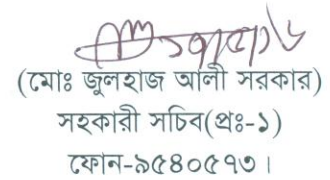 (মোঃ জুলহাজ আলী সরকার)
সহকারী সচিব(প্রঃ-১)
ফোন-৯৫৪০৫৭৩।